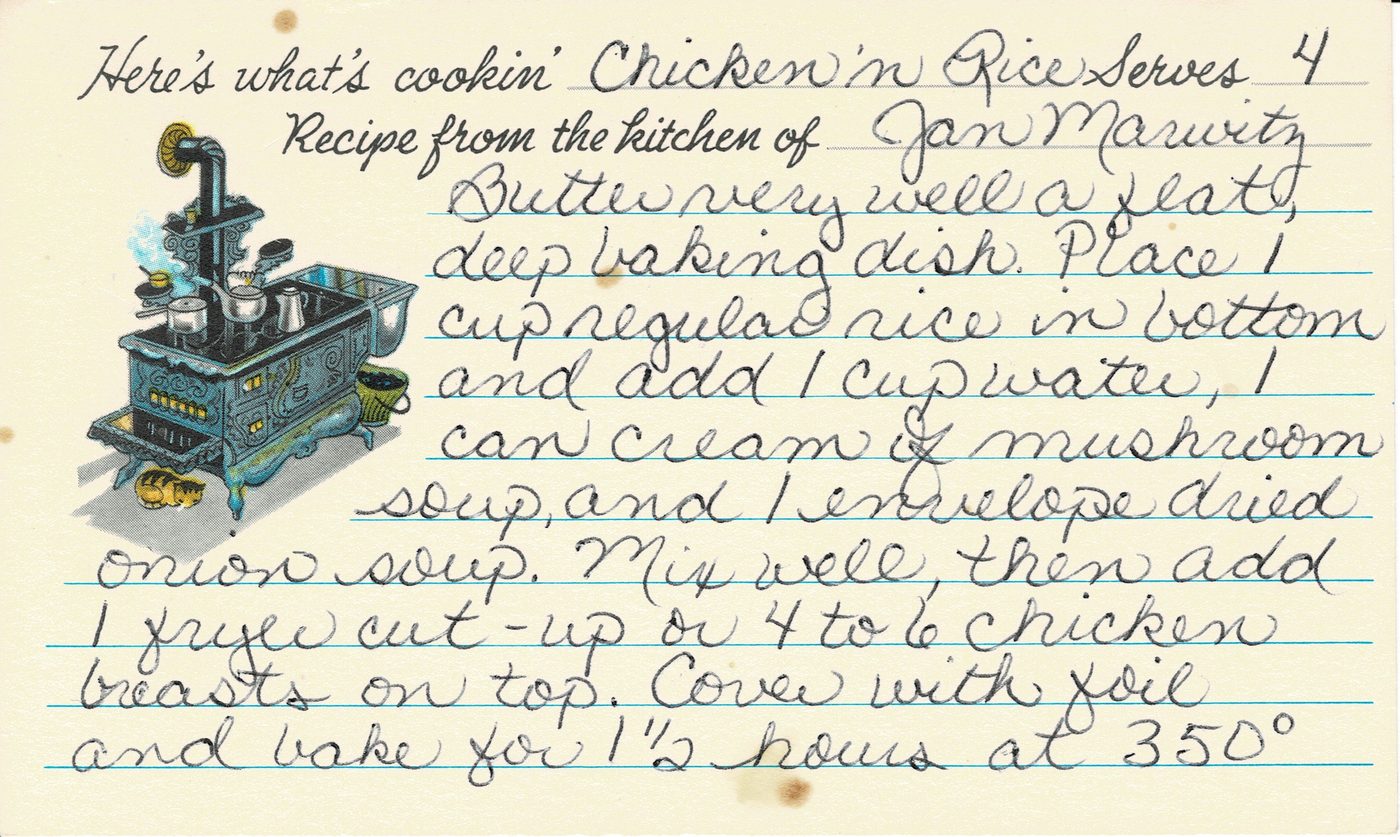 Here's what's cookin' Chicken 'n Rice Serves 4
Recipe from the kitchen of Jan Marwitz
Butter very well a flat,
deep baking dish. Place 1
cup regular rice in bottom
and add 1 cup water, 1
can cream of mushroom
soup, and 1 envelope dried
onion soup. Mix well, then add
1 fryer cut-up or 4 to 6 chicken
breasts on top. Cover with foil
and bake for 1 1/2 hours at 350°